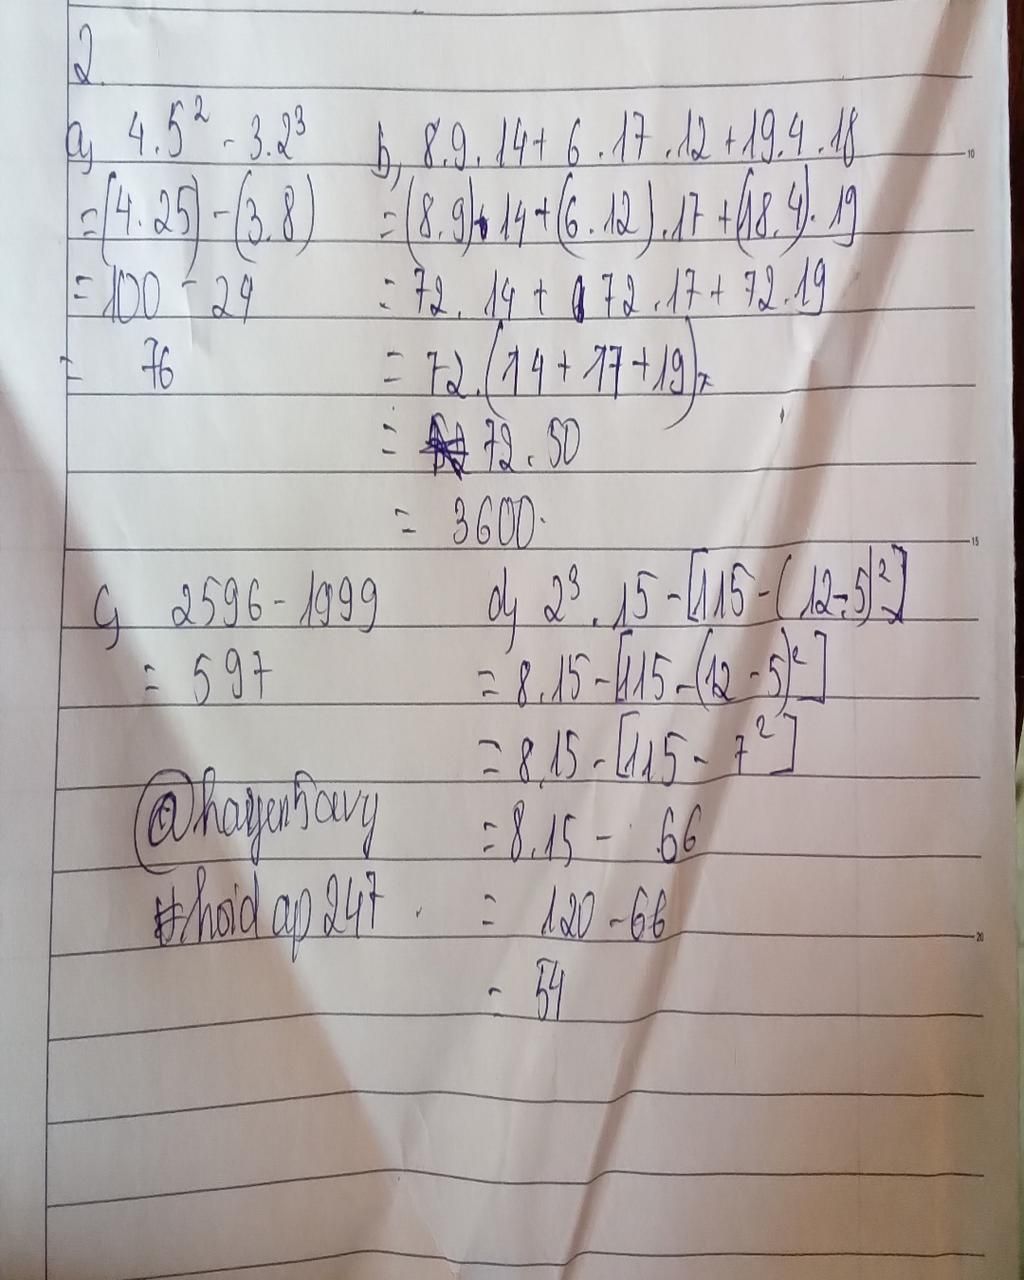 2.
a, 4.5² - 3.2³
= (4.25) - (3.8)
= 100 - 24
= 76
b, 8.9.14 + 6.17.12 + 19.4.18
= (8.9).14 + (6.12).17 + (18.4).19
= 72.14 + 72.17 + 72.19
= 72.(14 + 17 + 19)
= 72.50
= 3600.
c, 2596 - 1999
= 597
@hayen5avy
#hoidap247
d, 2³.15 - [115 - (12 - 5)²]
= 8.15 - [115 - (12 - 5)²]
= 8.15 - [115 - 7²]
= 8.15 - 66
= 120 - 66
= 54
10
15
20